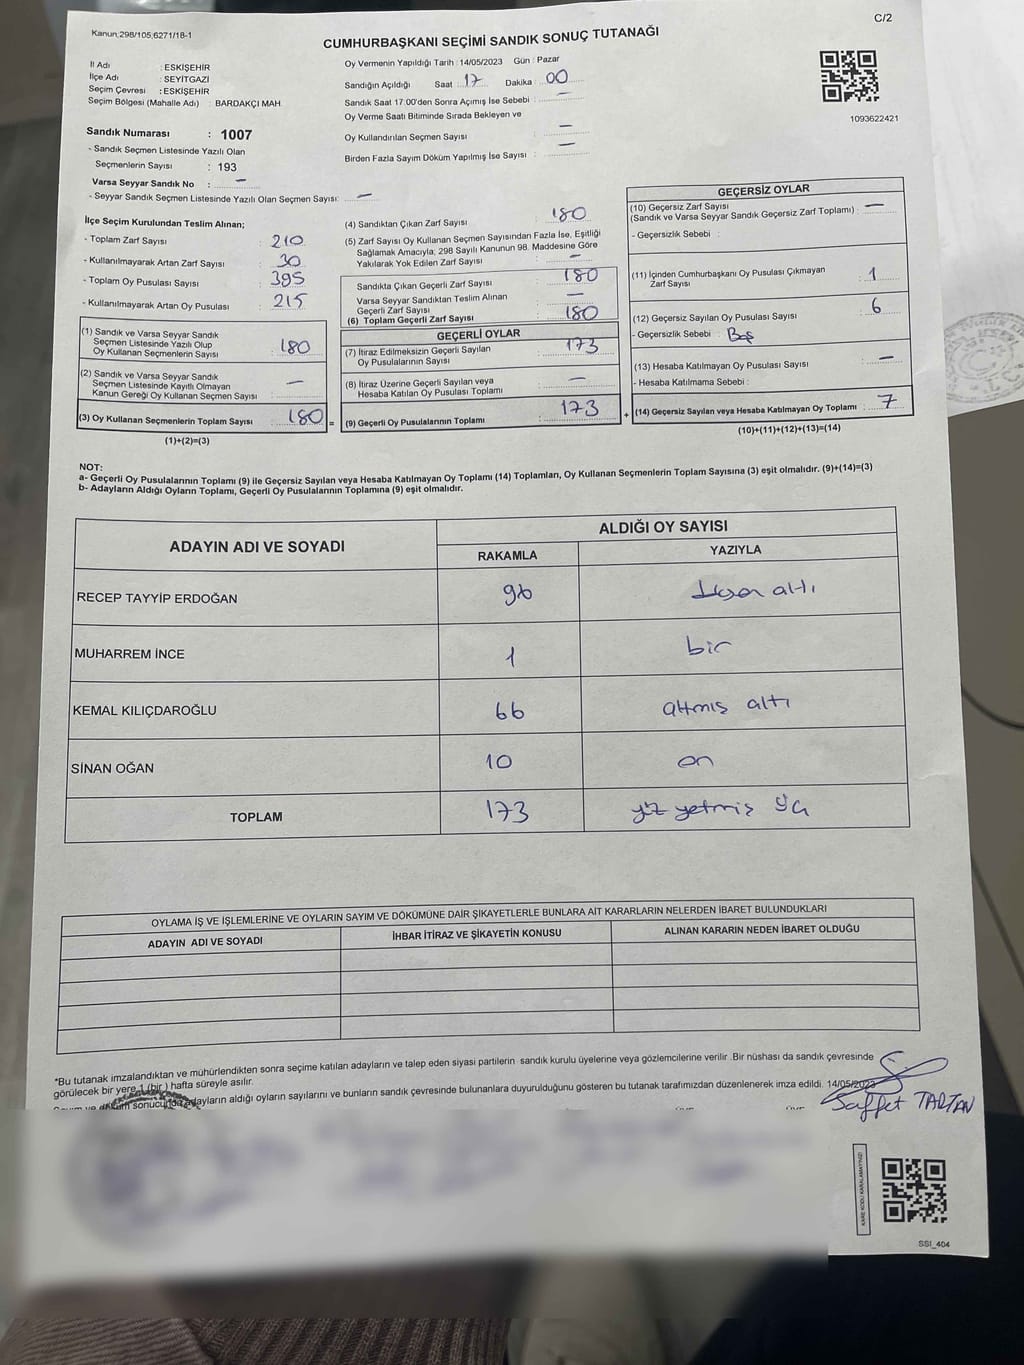 C/2
Kanun;298/105;6271/18-1
CUMHURBAŞKANI SEÇİMİ SANDIK SONUÇ TUTANAĞI
İl Adı : ESKİŞEHİR
İlçe Adı : SEYİTGAZİ
Seçim Çevresi : ESKİŞEHİR
Seçim Bölgesi (Mahalle Adı) : BARDAKÇI MAH.
Sandık Numarası : 1007
- Sandık Seçmen Listesinde Yazılı Olan
Seçmenlerin Sayısı : 193
Varsa Seyyar Sandık No : —
- Seyyar Sandık Seçmen Listesinde Yazılı Olan Seçmen Sayısı: —
Oy Vermenin Yapıldığı Tarih : 14/05/2023 Gün : Pazar
Sandığın Açıldığı Saat : 17 Dakika : 00
Sandık Saat 17:00'den Sonra Açımış İse Sebebi : —
Oy Verme Saati Bitiminde Sırada Bekleyen ve
Oy Kullandırılan Seçmen Sayısı : —
Birden Fazla Sayım Döküm Yapılmış İse Sayısı : —
1093622421
İlçe Seçim Kurulundan Teslim Alınan;
- Toplam Zarf Sayısı : 210
- Kullanılmayarak Artan Zarf Sayısı : 30
- Toplam Oy Pusulası Sayısı : 395
- Kullanılmayarak Artan Oy Pusulası : 215
(1) Sandık ve Varsa Seyyar Sandık
Seçmen Listesinde Yazılı Olup
Oy Kullanan Seçmenlerin Sayısı : 180
(2) Sandık ve Varsa Seyyar Sandık
Seçmen Listesinde Kayıtlı Olmayan
Kanun Gereği Oy Kullanan Seçmen Sayısı : —
(3) Oy Kullanan Seçmenlerin Toplam Sayısı : 180 =
(1)+(2)=(3)
(4) Sandıktan Çıkan Zarf Sayısı : 180
(5) Zarf Sayısı Oy Kullanan Seçmen Sayısından Fazla İse, Eşitliği
Sağlamak Amacıyla; 298 Sayılı Kanunun 98. Maddesine Göre
Yakılarak Yok Edilen Zarf Sayısı : —
Sandıkta Çıkan Geçerli Zarf Sayısı : 180
Varsa Seyyar Sandıktan Teslim Alınan
Geçerli Zarf Sayısı : —
(6) Toplam Geçerli Zarf Sayısı : 180
GEÇERLİ OYLAR
(7) İtiraz Edilmeksizin Geçerli Sayılan
Oy Pusulalarının Sayısı : 173
(8) İtiraz Üzerine Geçerli Sayılan veya
Hesaba Katılan Oy Pusulası Toplamı : —
(9) Geçerli Oy Pusulalarının Toplamı : 173 +
GEÇERSİZ OYLAR
(10) Geçersiz Zarf Sayısı
(Sandık ve Varsa Seyyar Sandık Geçersiz Zarf Toplamı) : —
- Geçersizlik Sebebi :
(11) İçinden Cumhurbaşkanı Oy Pusulası Çıkmayan
Zarf Sayısı : 1
(12) Geçersiz Sayılan Oy Pusulası Sayısı : 6
- Geçersizlik Sebebi : Boş
(13) Hesaba Katılmayan Oy Pusulası Sayısı : —
- Hesaba Katılmama Sebebi :
(14) Geçersiz Sayılan veya Hesaba Katılmayan Oy Toplamı : 7
(10)+(11)+(12)+(13)=(14)
NOT:
a- Geçerli Oy Pusulalarının Toplamı (9) ile Geçersiz Sayılan veya Hesaba Katılmayan Oy Toplamı (14) Toplamları, Oy Kullanan Seçmenlerin Toplam Sayısına (3) eşit olmalıdır. (9)+(14)=(3)
b- Adayların Aldığı Oyların Toplamı, Geçerli Oy Pusulalarının Toplamına (9) eşit olmalıdır.
ADAYIN ADI VE SOYADI
ALDIĞI OY SAYISI
RAKAMLA YAZIYLA
RECEP TAYYİP ERDOĞAN 96 altı
MUHARREM İNCE 1 bir
KEMAL KILIÇDAROĞLU 66 altmış altı
SİNAN OĞAN 10 on
TOPLAM 173 yüz yetmiş üç
OYLAMA İŞ VE İŞLEMLERİNE VE OYLARIN SAYIM VE DÖKÜMÜNE DAİR ŞİKAYETLERLE BUNLARA AİT KARARLARIN NELERDEN İBARET BULUNDUKLARI
ADAYIN ADI VE SOYADI İHBAR İTİRAZ VE ŞİKAYETİN KONUSU ALINAN KARARIN NEDEN İBARET OLDUĞU
*Bu tutanak imzalandıktan ve mühürlendikten sonra seçime katılan adayların ve talep eden siyasi partilerin sandık kurulu üyelerine veya gözlemcilerine verilir .Bir nüshası da sandık çevresinde
görülecek bir yere 1 (bir ) hafta süreyle asılır.
sonucunda adayların aldığı oyların sayılarını ve bunların sandık çevresinde bulunanlara duyurulduğunu gösteren bu tutanak tarafımızdan düzenlenerek imza edildi. 14/05/2023
Saffet TARTAN
KARE KODU KARALAMAYINIZ!
SSI_404